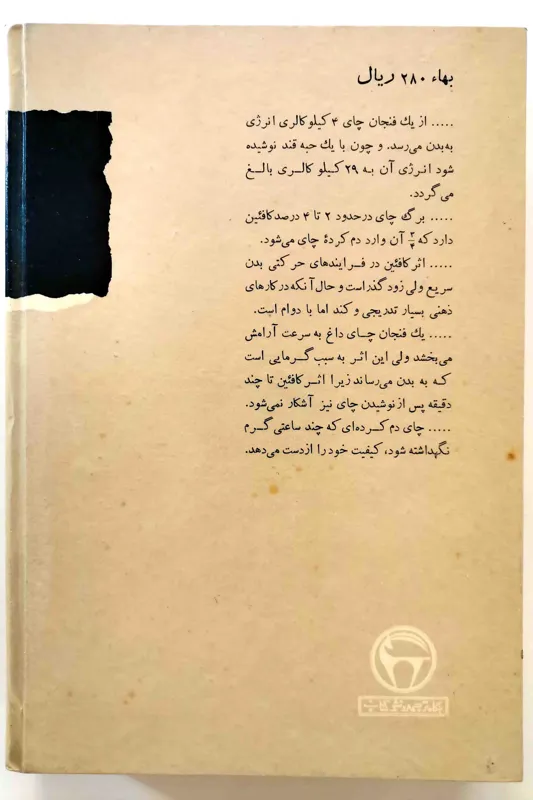 بهاء ۲۸۰ ریال
..... از یك فنجان چای ۴ کیلوکالری انرژی
به‌بدن می‌رسد. و چون با یك حبه قند نوشیده
شود انرژی آن به ۲۹ کیلو کالری بالغ
می‌گردد.
..... برگ چای درحدود ۲ تا ۴ درصد کافئین
دارد که ۳/۴ آن وارد دم کردهٔ چای می‌شود.
..... اثر کافئین در فرایندهای حرکتی بدن
سریع ولی زود گذر است و حال آنکه در کارهای
ذهنی بسیار تدریجی و کند اما با دوام است.
..... یك فنجان چای داغ به سرعت آرامش
می‌بخشد ولی این اثر به سبب گرمایی است
که به بدن می‌رساند زیرا اثر کافئین تا چند
دقیقه پس از نوشیدن چای نیز آشکار نمی‌شود.
..... چای دم کرده‌ای که چند ساعتی گرم
نگهداشته شود، کیفیت خود را از دست می‌دهد.
بنگاه ترجمه و نشر کتاب